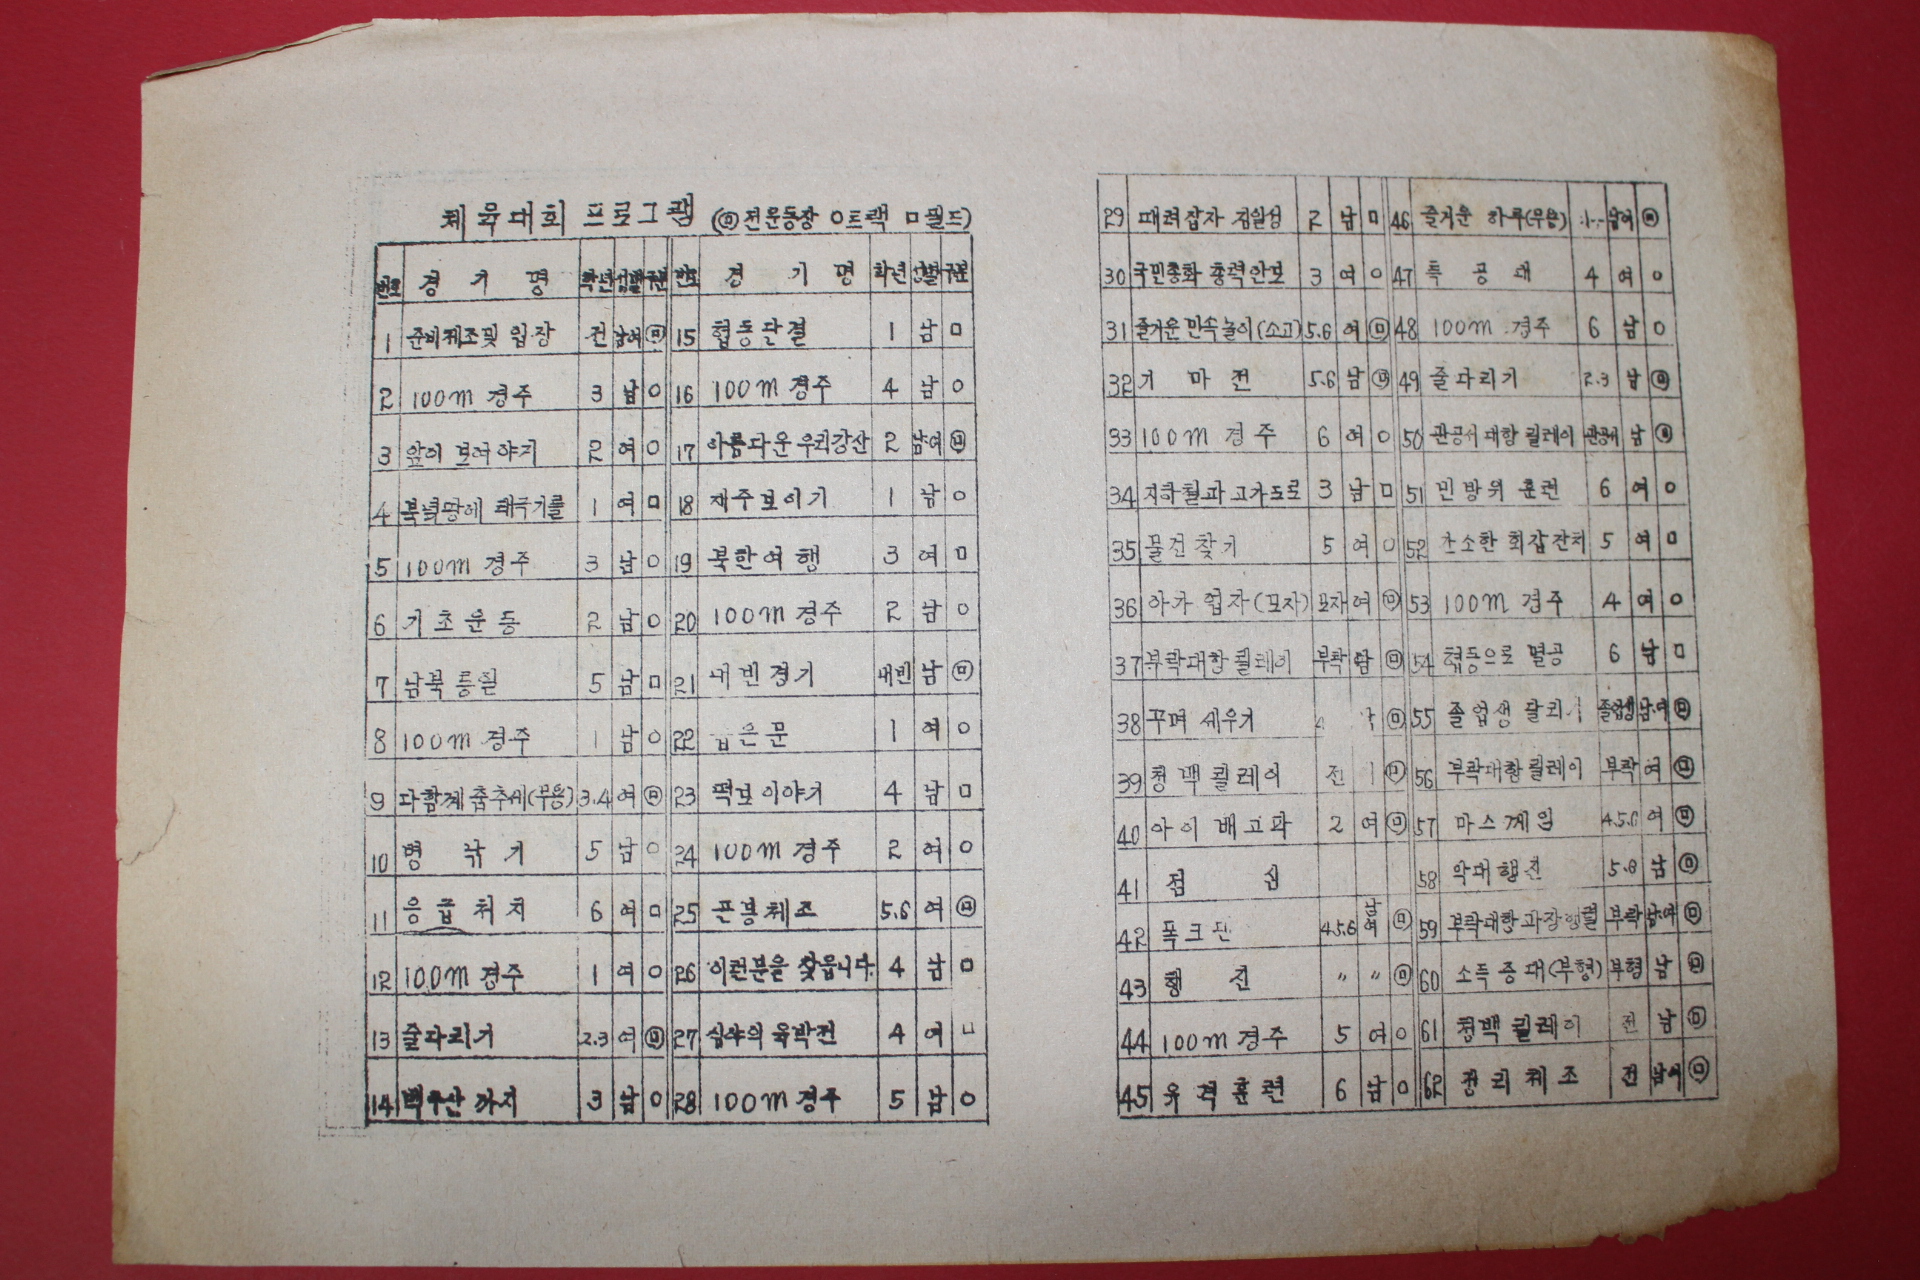 체육대회 프로그램 (◎전운동장 ○트랙 □필드)
번호 경기명 학년 성별 구분 번호 경기명 학년 성별 구분
1 준비체조및 입장 전 남여 ◎ 15 협동단결 1 남 □
2 100m 경주 3 남 ○ 16 100m 경주 4 남 ○
3 앞이 보여야지 2 여 ○ 17 아름다운 우리강산 2 남여 ◎
4 북녘땅에 태극기를 1 여 □ 18 재주보이기 1 남 ○
5 100m 경주 3 남 ○ 19 북한여행 3 여 □
6 기초운동 2 남 ○ 20 100m 경주 2 남 ○
7 남북통일 5 남 □ 21 내빈경기 내빈 남 ◎
8 100m 경주 1 남 ○ 22 좁은문 1 여 ○
9 다함께 춤추세(무용) 3.4 여 ◎ 23 떡보이야기 4 남 □
10 병 낚기 5 남 ○ 24 100m 경주 2 여 ○
11 응급처치 6 여 □ 25 곤봉체조 5.6 여 ◎
12 100m 경주 1 여 ○ 26 이런분을 찾읍니다 4 남 □
13 줄다리기 2.3 여 ◎ 27 심야의 육박전 4 여 □
14 백두산까지 3 남 ○ 28 100m 경주 5 남 ○
29 때려잡자 김일성 2 남 □ 46 즐거운 하루(무용) 남여 ◎
30 국민총화 총력안보 3 여 ○ 47 특공대 4 여 ○
31 즐거운 민속놀이(소고) 5.6 여 ◎ 48 100m 경주 6 남 ○
32 기마전 5.6 남 ◎ 49 줄다리기 2.3 남 ◎
33 100m 경주 6 여 ○ 50 관공서 대항 릴레이 관공서 남 ◎
34 지하철과 고가도로 3 남 □ 51 민방위 훈련 6 여 ○
35 물건찾기 5 여 ○ 52 간소한 회갑잔치 5 여 □
36 아가 업자(모자) 모자 여 ◎ 53 100m 경주 4 여 ○
37 부락대항 릴레이 부락 남 ◎ 54 협동으로 멸공 6 남 □
38 꾸며 세우기 ◎ 55 졸업생 달리기 졸업생 남여 ◎
39 청백 릴레이 전 ◎ 56 부락대항릴레이 부락 여 ◎
40 아이 배고파 2 여 ◎ 57 마스게임 4.5.6 여 ◎
41 점심 58 악대행진 5.6 남 ◎
42 폭크댄 4.5.6 남여 ◎ 59 부락대항 가장행렬 부락 남여 ◎
43 행진 〃 〃 ◎ 60 소득증대(부형) 부형 남 ◎
44 100m 경주 5 여 ○ 61 청백 릴레이 전 남 ◎
45 유격훈련 6 남 ○ 62 정리체조 전 남여 ◎